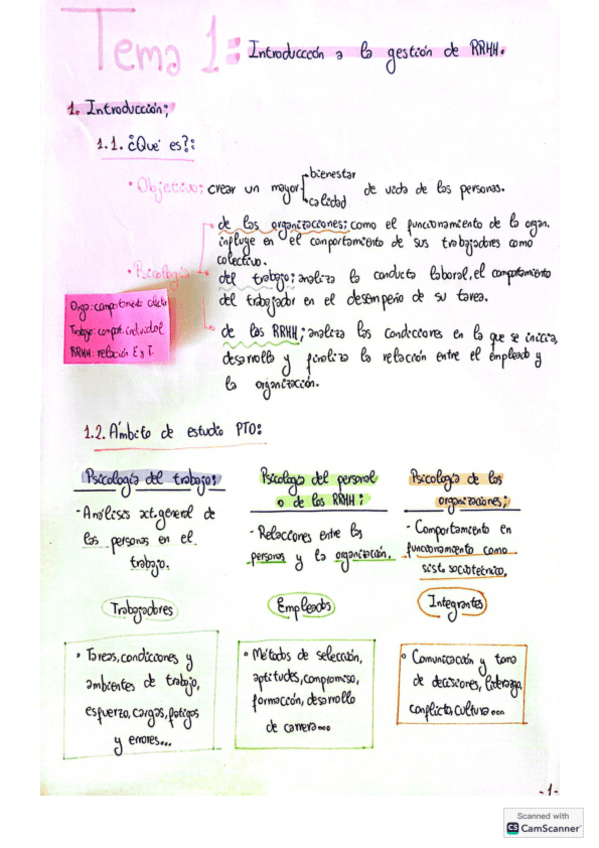 Tema 1: Introducción a la gestión de RRHH.
1. Introducción;
1.1. ¿Qué es?:
• Objetivo: crear un mayor bienestar calidad de vida de las personas.
• Psicología
de las organizaciones: como el funcionamiento de la organ.
influye en el comportamiento de sus trabajadores como
colectivo.
del trabajo; analiza la conducta laboral, el comportamiento
del trabajador en el desempeño de su tarea.
de los RRHH; analiza las condiciones en la que se inicia,
desarrolla y finaliza la relación entre el empleado y
la organización.
Orga: comportamiento colectiv
Trabajo: comport. individual
RRHH: relación E y T.
1.2. Ámbito de estudio PTO:
Psicología del trabajo:
- Análisis act. general de
las personas en el
trabajo.
Trabajadores
• Tareas, condiciones y
ambientes de trabajo,
esfuerzo, cargas, fatigas
y errores...
Psicología del personal
o de los RRHH:
- Relaciones entre las
personas y la organización.
Empleados
• Métodos de selección,
aptitudes, compromiso,
formación, desarrollo
de carrera...
Psicología de las
organizaciones;
- Comportamiento en
funcionamiento como
sist. sociotécnico.
Integrantes
• Comunicación y toma
de decisiones, liderazgo,
conflicto, cultura...
-1-
Scanned with
CS CamScanner